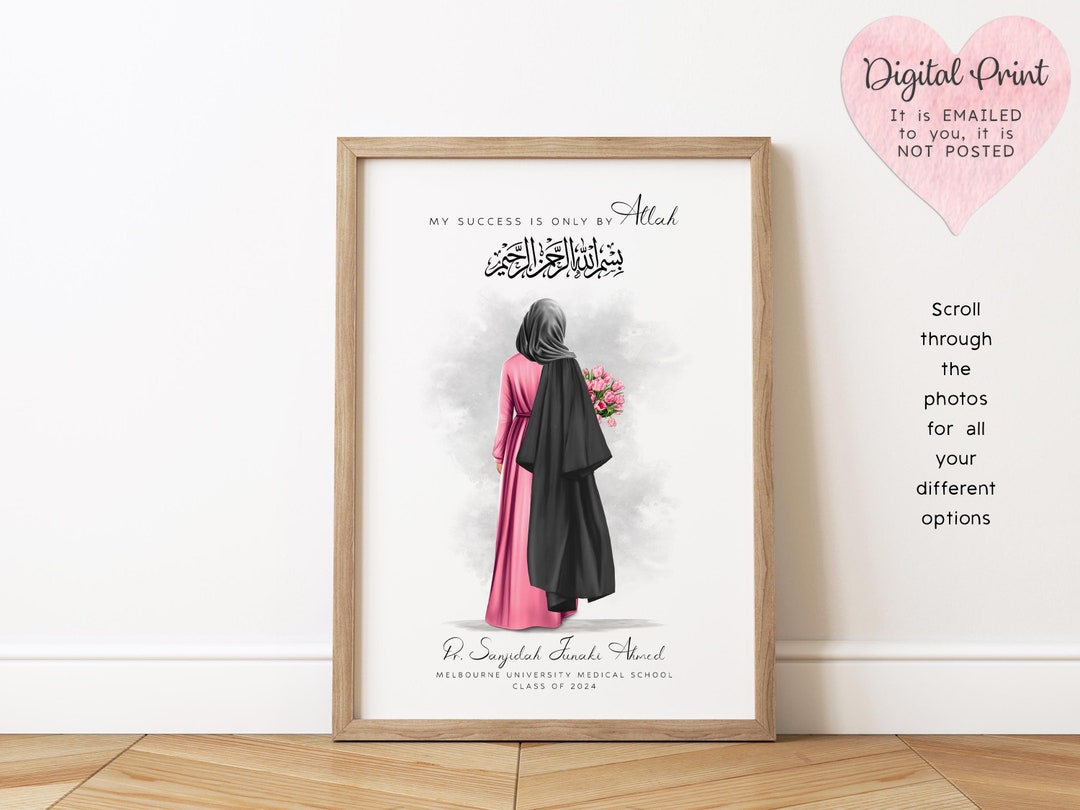 Digital Print
It is EMAILED
to you, it is
NOT POSTED
MY SUCCESS IS ONLY BY Allah
بِسْمِ اللهِ الرَّحْمٰنِ الرَّحِيْمِ
Scroll
through
the
photos
for all
your
different
options
Dr. Sanjidah Junaki Ahmed
MELBOURNE UNIVERSITY MEDICAL SCHOOL
CLASS OF 2024